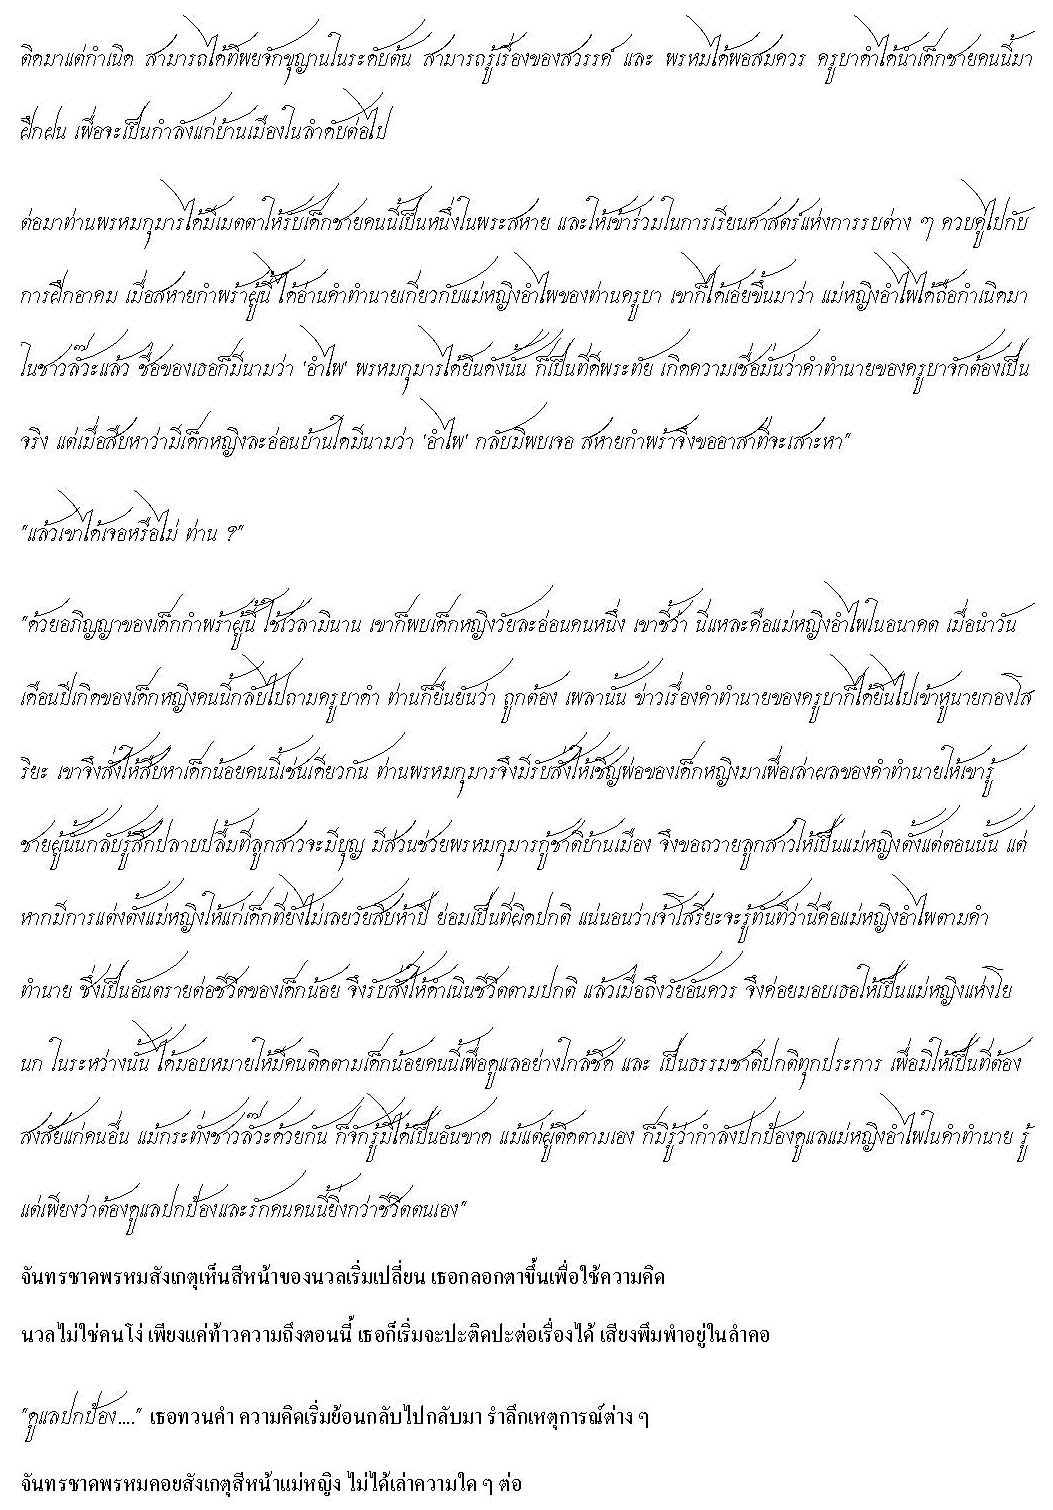 ติดมาแต่กำเนิด สามารถได้ทิพยจักขุญานในระดับต้น สามารถรู้เรื่องของสวรรค์ และ พรหมได้พอสมควร ครูบาดำได้นำเด็กชายคนนี้มา
ฝึกฝน เพื่อจะเป็นกำลังแก่บ้านเมืองในลำดับต่อไป
ต่อมาท่านพรหมกุมารได้มีเมตตาให้รับเด็กชายคนนี้เป็นหนึ่งในพระสหาย และให้เข้าร่วมในการเรียนศาสตร์แห่งการรบต่าง ๆ ควบคู่ไปกับ
การฝึกอาคม เมื่อสหายกำพร้าผู้นี้ ได้อ่านคำทำนายเกี่ยวกับแม่หญิงอำไพของท่านครูบา เขาก็ได้เอ่ยขึ้นมาว่า แม่หญิงอำไพได้ถือกำเนิดมา
ในชาวลั๊วะแล้ว ชื่อของเธอก็มีนามว่า 'อำไพ' พรหมกุมารได้ยินดังนั้น ก็เป็นที่ดีพระทัย เกิดความเชื่อมั่นว่าคำทำนายของครูบาจักต้องเป็น
จริง แต่เมื่อสืบหาว่ามีเด็กหญิงละอ่อนบ้านใดมีนามว่า 'อำไพ' กลับมิพบเจอ สหายกำพร้าจึงขออาสาที่จะเสาะหา"
"แล้วเขาได้เจอหรือไม่ ท่าน ?"
"ด้วยอภิญญาของเด็กกำพร้าผู้นี้ ใช้เวลามินาน เขาก็พบเด็กหญิงวัยละอ่อนคนหนึ่ง เขาชี้ว่า นี่แหละคือแม่หญิงอำไพในอนาคต เมื่อนำวัน
เดือนปีเกิดของเด็กหญิงคนนี้กลับไปถามครูบาดำ ท่านก็ยืนยันว่า ถูกต้อง เพลานั้น ข่าวเรื่องคำทำนายของครูบาก็ได้ยินไปเข้าหูนายกองโส
ริยะ เขาจึงสั่งให้สืบหาเด็กน้อยคนนี้เช่นเดียวกัน ท่านพรหมกุมารจึงมีรับสั่งให้เชิญพ่อของเด็กหญิงมาเพื่อเล่าผลของคำทำนายให้เขารู้
ชายผู้นั้นกลับรู้สึกปลาบปลื้มที่ลูกสาวจะมีบุญ มีส่วนช่วยพรหมกุมารกู้ชาติบ้านเมือง จึงขอถวายลูกสาวให้เป็นแม่หญิงตั้งแต่ตอนนั้น แต่
หากมีการแต่งตั้งแม่หญิงให้แก่เด็กที่ยังไม่เลยวัยสิบห้าปี ย่อมเป็นที่ผิดปกติ แน่นอนว่าเจ้าโสริยะจะรู้ทันทีว่านี่คือแม่หญิงอำไพตามคำ
ทำนาย ซึ่งเป็นอันตรายต่อชีวิตของเด็กน้อย จึงรับสั่งให้ดำเนินชีวิตตามปกติ แล้วเมื่อถึงวัยอันควร จึงค่อยมอบเธอให้เป็นแม่หญิงแห่งโย
นก ในระหว่างนั้น ได้มอบหมายให้มีคนติดตามเด็กน้อยคนนี้เพื่อดูแลอย่างใกล้ชิด และ เป็นธรรมชาติปกติทุกประการ เพื่อมิให้เป็นที่ต้อง
สงสัยแก่คนอื่น แม้กระทั่งชาวลั๊วะด้วยกัน ก็จักรู้มิได้เป็นอันขาด แม้แต่ผู้ติดตามเอง ก็มิรู้ว่ากำลังปกป้องดูแลแม่หญิงอำไพในคำทำนาย รู้
แต่เพียงว่าต้องดูแลปกป้องและรักคนคนนี้ยิ่งกว่าชีวิตตนเอง"
จันทรชาดพรหมสังเกตุเห็นสีหน้าของนวลเริ่มเปลี่ยน เธอกลอกตาขึ้นเพื่อใช้ความคิด
นวลไม่ใช่คนโง่ เพียงแค่ท้าวความถึงตอนนี้ เธอก็เริ่มจะปะติดปะต่อเรื่องได้ เสียงพึมพำอยู่ในลำคอ
"ดูแลปกป้อง...." เธอทวนคำ ความคิดเริ่มย้อนกลับไปกลับมา รำลึกเหตุการณ์ต่าง ๆ
จันทรชาดพรหมคอยสังเกตุสีหน้าแม่หญิง ไม่ได้เล่าความใด ๆ ต่อ